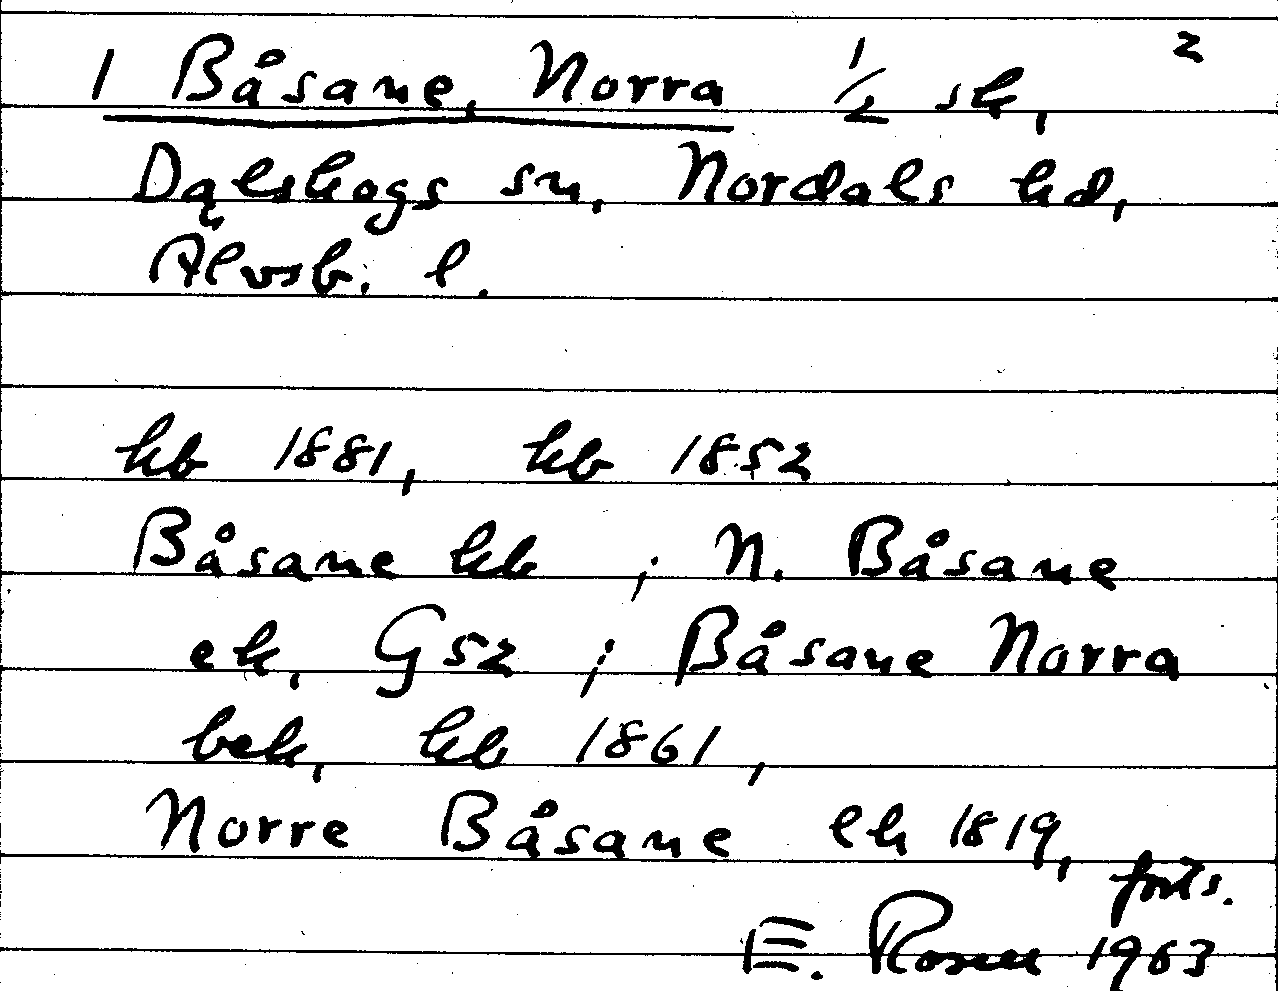 1 Båsane, Norra ½ sk, 2
Dalskogs sn, Nordals hd,
Älvsb. l.
hb 1881, hb 1852
Båsane hb ; N. Båsane
ek, G52 ; Båsane Norra
bek, hb 1861,
Norre Båsane ek 1819,
forts.
E. Rosen 1963